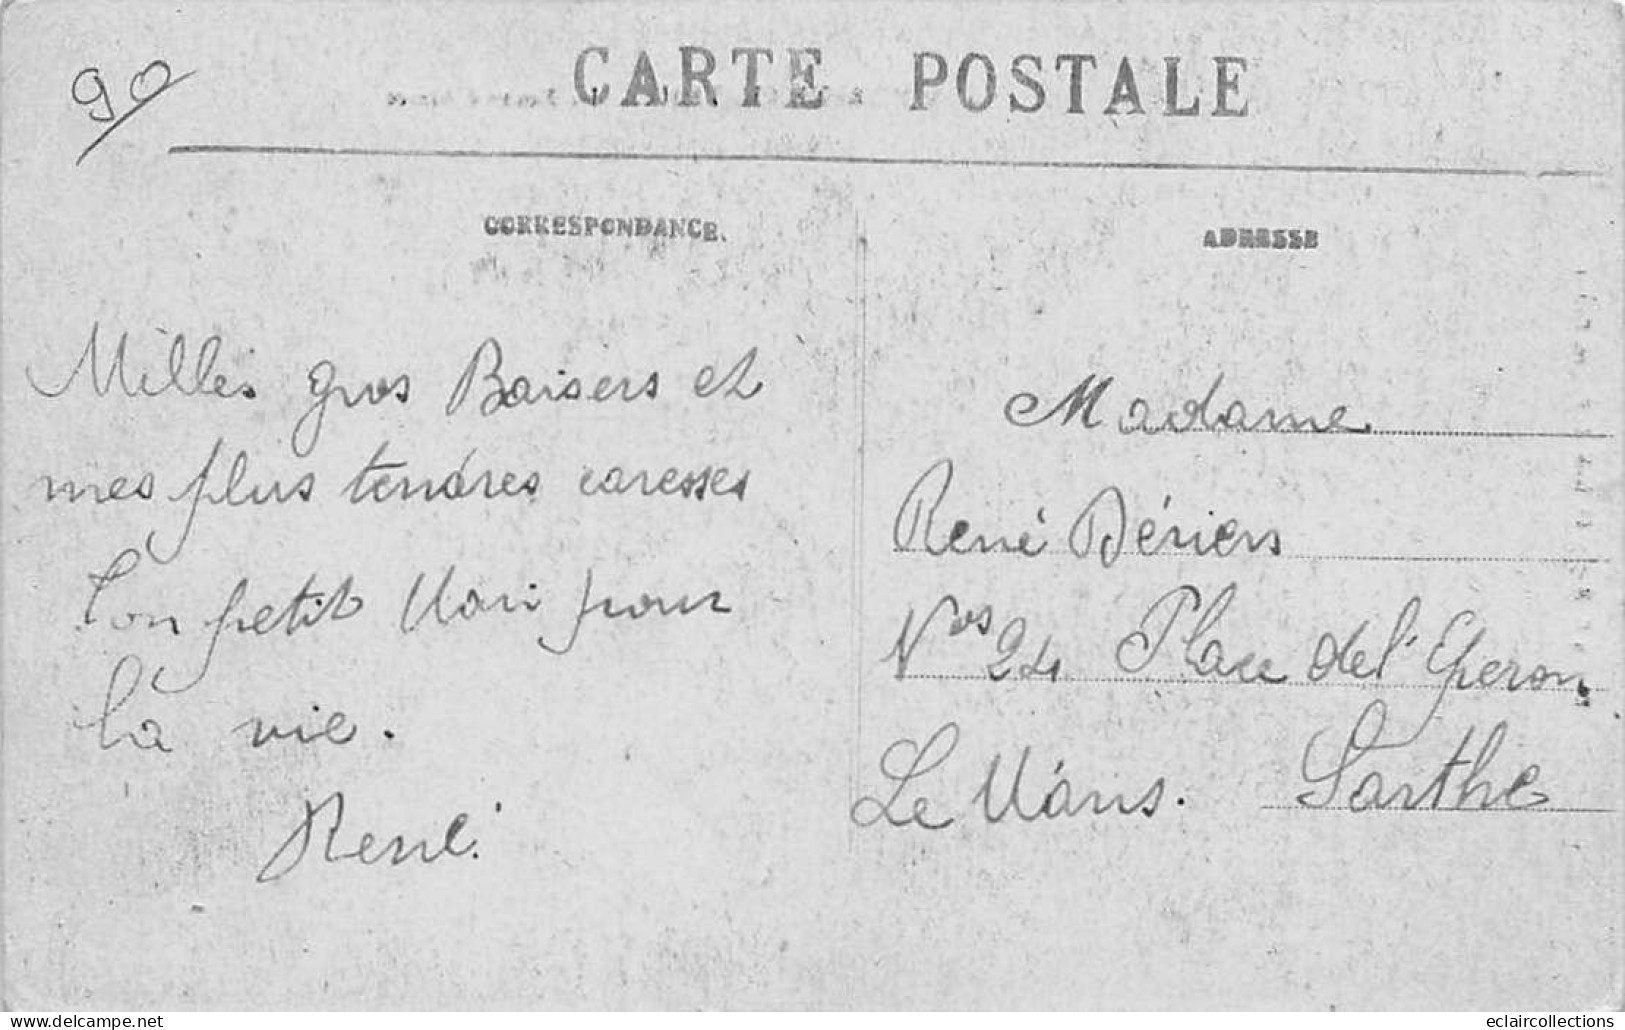 90
CARTE POSTALE
CORRESPONDANCE.
ADRESSE
Milles gros Baisers et
mes plus tendres caresses
Ton petit Mari pour
la vie.
René
Madame
René Dériers
Nos 24 Place de l'Eperon
Le Mans. Sarthe
www.delcampe.net
eclaircollections